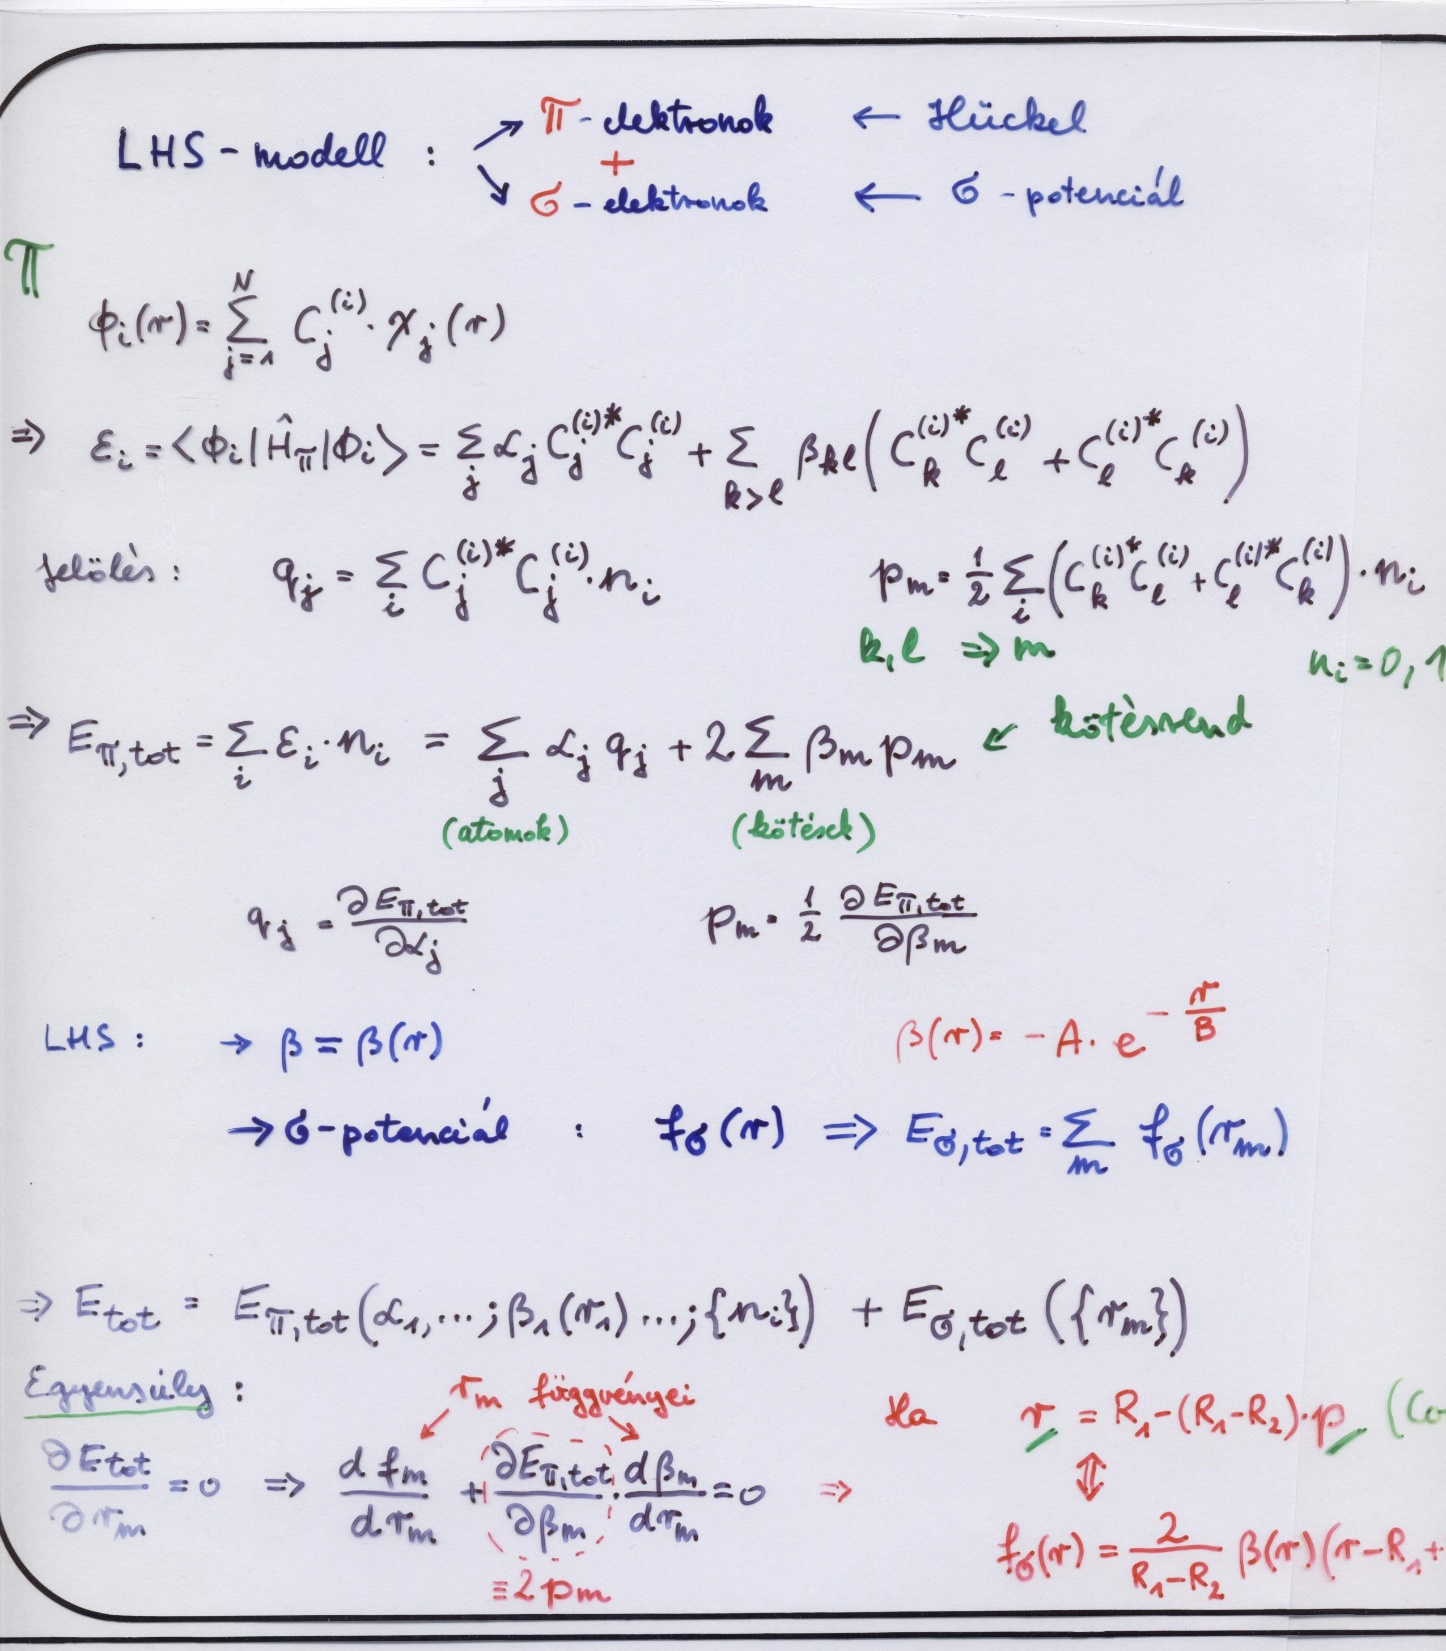 LHS-modell : ↗ π-elektronok ← Hückel
+
↘ σ-elektronok ← σ-potenciál
π
ϕ_i(r) = Σ_{j=1}^{N} C_j^{(i)} · χ_j(r)
⇒ ε_i = <ϕ_i|Ĥ_π|ϕ_i> = Σ_j α_j C_j^{(i)*} C_j^{(i)} + Σ_{k>l} β_{kl} (C_k^{(i)*} C_l^{(i)} + C_l^{(i)*} C_k^{(i)})
Jelölés: q_j = Σ_i C_j^{(i)*} C_j^{(i)} · n_i p_m = 1/2 Σ_i (C_k^{(i)*} C_l^{(i)} + C_l^{(i)*} C_k^{(i)}) · n_i
k, l ⇒ m n_i = 0, 1
⇒ E_{π,tot} = Σ_i ε_i · n_i = Σ_j α_j q_j + 2 Σ_m β_m p_m ↙ kötésrend
(atomok) (kötések)
q_j = ∂E_{π,tot}/∂α_j p_m = 1/2 ∂E_{π,tot}/∂β_m
LHS : → β = β(r) β(r) = -A · e^{-r/B}
→ σ-potenciál : f_σ(r) ⇒ E_{σ,tot} = Σ_m f_σ(r_m)
⇒ E_{tot} = E_{π,tot}(α_1, ...; β_1(r_1) ...; {n_i}) + E_{σ,tot}({r_m})
Egyensúly : r_m függvényei Ha r = R_1 - (R_1 - R_2) · p (Co
∂E_{tot}/∂r_m = 0 ⇒ df_m/dr_m + ∂E_{π,tot}/∂β_m · dβ_m/dr_m = 0 ⇒ ⇕
≡ 2p_m f_σ(r) = 2/(R_1 - R_2) β(r)(r - R_1 +